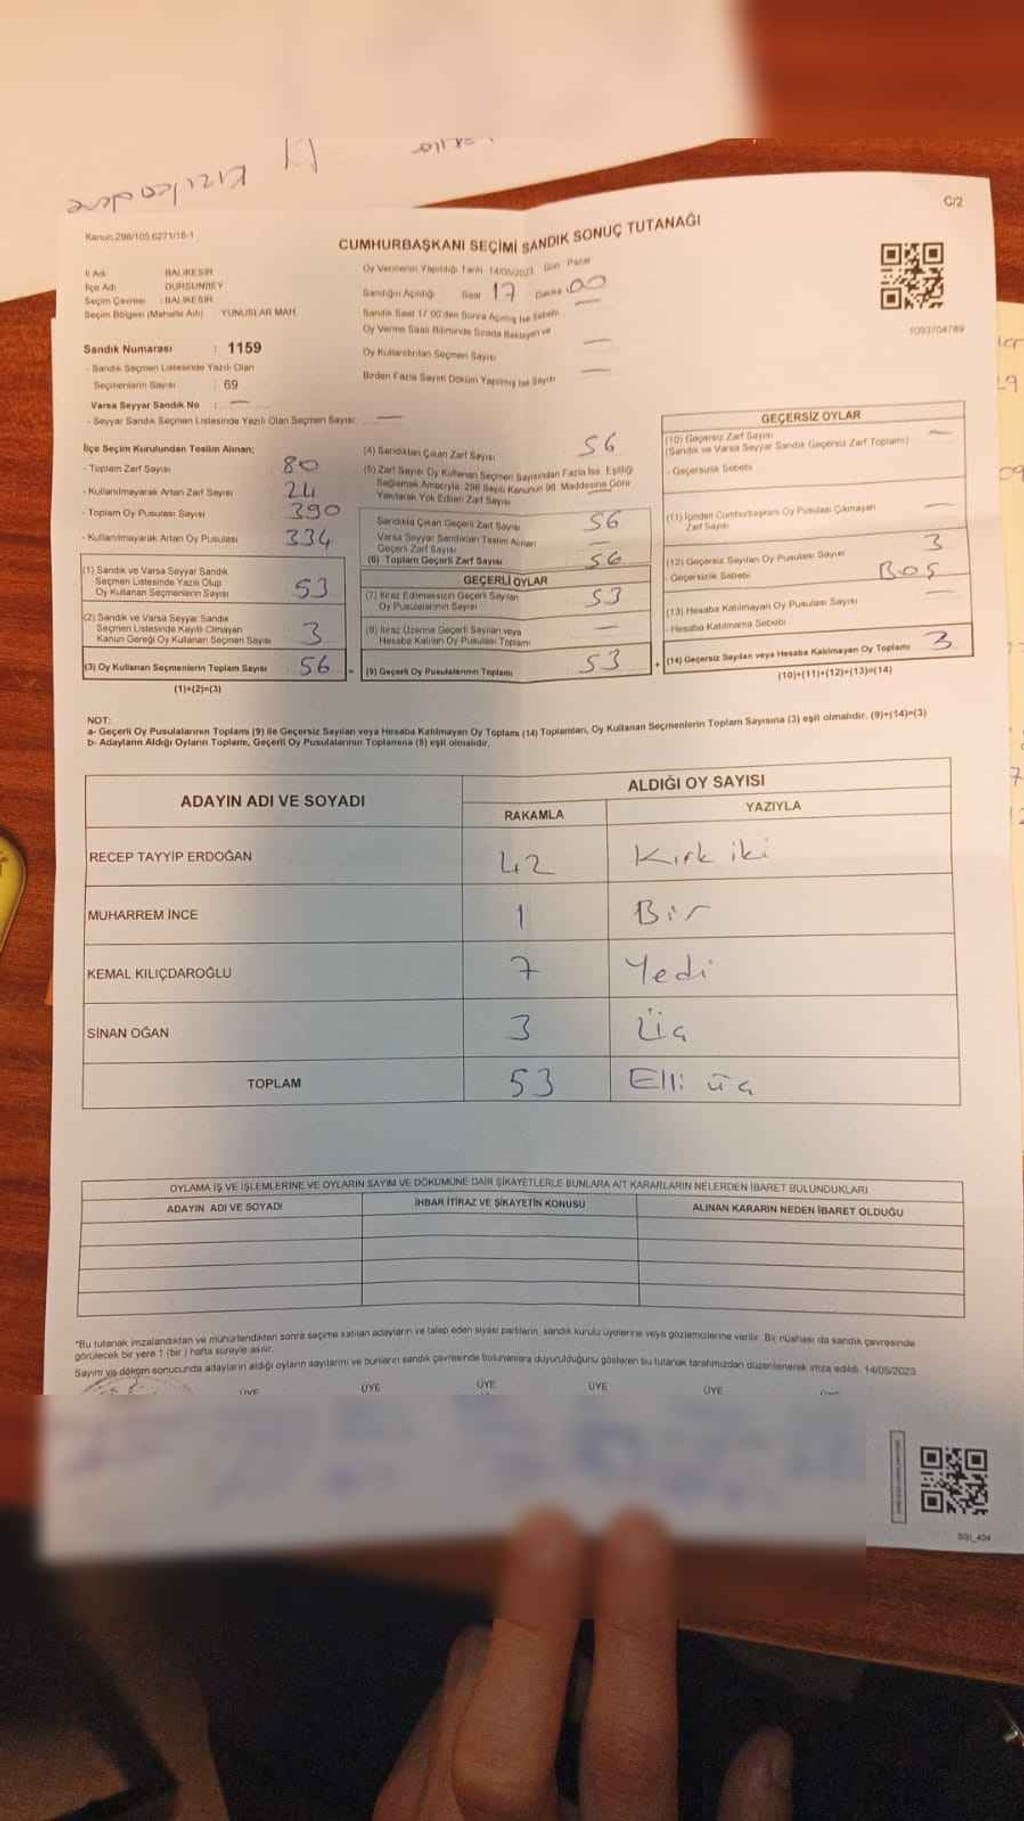 Kızılcadere
C/2
Kanun:298/105 6271/18-1
CUMHURBAŞKANI SEÇİMİ SANDIK SONUÇ TUTANAĞI
İl Adı : BALIKESİR
İlçe Adı : DURSUNBEY
Seçim Çevresi : BALIKESİR
Seçim Bölgesi (Mahalle Adı) : YUNUSLAR MAH.
Oy Vermenin Yapıldığı Tarih 14/05/2023 Gün Pazar
Sandığın Açıldığı Saat 17 Dakika 00
Sandık Saat 17:00'den Sonra Açılmış İse Sebebi
Oy Verme Saati Bitiminde Sırada Bekleyen ve
Oy Kullandırılan Seçmen Sayısı —
Birden Fazla Sayım Döküm Yapılmış İse Sayısı —
1093704789
Sandık Numarası : 1159
- Sandık Seçmen Listesinde Yazılı Olan
Seçmenlerin Sayısı : 69
Varsa Seyyar Sandık No : —
- Seyyar Sandık Seçmen Listesinde Yazılı Olan Seçmen Sayısı : —
İlçe Seçim Kurulundan Teslim Alınan;
- Toplam Zarf Sayısı 80
- Kullanılmayarak Artan Zarf Sayısı 24
- Toplam Oy Pusulası Sayısı 390
- Kullanılmayarak Artan Oy Pusulası 334
(1) Sandık ve Varsa Seyyar Sandık
Seçmen Listesinde Yazılı Olup
Oy Kullanan Seçmenlerin Sayısı 53
(2) Sandık ve Varsa Seyyar Sandık
Seçmen Listesinde Kayıtlı Olmayan
Kanun Gereği Oy Kullanan Seçmen Sayısı 3
(3) Oy Kullanan Seçmenlerin Toplam Sayısı 56 =
(1)+(2)=(3)
(4) Sandıktan Çıkan Zarf Sayısı 56
(5) Zarf Sayısı Oy Kullanan Seçmen Sayısından Fazla İse, Eşitliği
Sağlamak Amacıyla; 298 Sayılı Kanunun 98. Maddesine Göre
Yakılarak Yok Edilen Zarf Sayısı —
Sandıkta Çıkan Geçerli Zarf Sayısı 56
Varsa Seyyar Sandıktan Teslim Alınan
Geçerli Zarf Sayısı —
(6) Toplam Geçerli Zarf Sayısı 56
GEÇERLİ OYLAR
(7) İtiraz Edilmeksizin Geçerli Sayılan
Oy Pusulalarının Sayısı 53
(8) İtiraz Üzerine Geçerli Sayılan veya
Hesaba Katılan Oy Pusulası Toplamı —
(9) Geçerli Oy Pusulalarının Toplamı 53 +
GEÇERSİZ OYLAR
(10) Geçersiz Zarf Sayısı —
(Sandık ve Varsa Seyyar Sandık Geçersiz Zarf Toplamı)
- Geçersizlik Sebebi
(11) İçinden Cumhurbaşkanı Oy Pusulası Çıkmayan —
Zarf Sayısı
(12) Geçersiz Sayılan Oy Pusulası Sayısı 3
- Geçersizlik Sebebi BOŞ
(13) Hesaba Katılmayan Oy Pusulası Sayısı —
- Hesaba Katılmama Sebebi
(14) Geçersiz Sayılan veya Hesaba Katılmayan Oy Toplamı 3
(10)+(11)+(12)+(13)=(14)
NOT:
a- Geçerli Oy Pusulalarının Toplamı (9) ile Geçersiz Sayılan veya Hesaba Katılmayan Oy Toplamı (14) Toplamları, Oy Kullanan Seçmenlerin Toplam Sayısına (3) eşit olmalıdır. (9)+(14)=(3)
b- Adayların Aldığı Oyların Toplamı, Geçerli Oy Pusulalarının Toplamına (9) eşit olmalıdır.
ADAYIN ADI VE SOYADI ALDIĞI OY SAYISI
RAKAMLA YAZIYLA
RECEP TAYYİP ERDOĞAN 42 Kırk iki
MUHARREM İNCE 1 Bir
KEMAL KILIÇDAROĞLU 7 Yedi
SİNAN OĞAN 3 Üç
TOPLAM 53 Elli üç
OYLAMA İŞ VE İŞLEMLERİNE VE OYLARIN SAYIM VE DÖKÜMÜNE DAİR ŞİKAYETLERLE BUNLARA AİT KARARLARIN NELERDEN İBARET BULUNDUKLARI
ADAYIN ADI VE SOYADI İHBAR İTİRAZ VE ŞİKAYETİN KONUSU ALINAN KARARIN NEDEN İBARET OLDUĞU
*Bu tutanak imzalandıktan ve mühürlendikten sonra seçime katılan adayların ve talep eden siyasi partilerin, sandık kurulu üyelerine veya gözlemcilerine verilir. Bir nüshası da sandık çevresinde
görülecek bir yere 1 (bir ) hafta süreyle asılır.
Sayım ve döküm sonucunda adayların aldığı oyların sayılarını ve bunların sandık çevresinde bulunanlara duyurulduğunu gösteren bu tutanak tarafımızdan düzenlenerek imza edildi. 14/05/2023
ÜYE ÜYE ÜYE ÜYE ÜYE